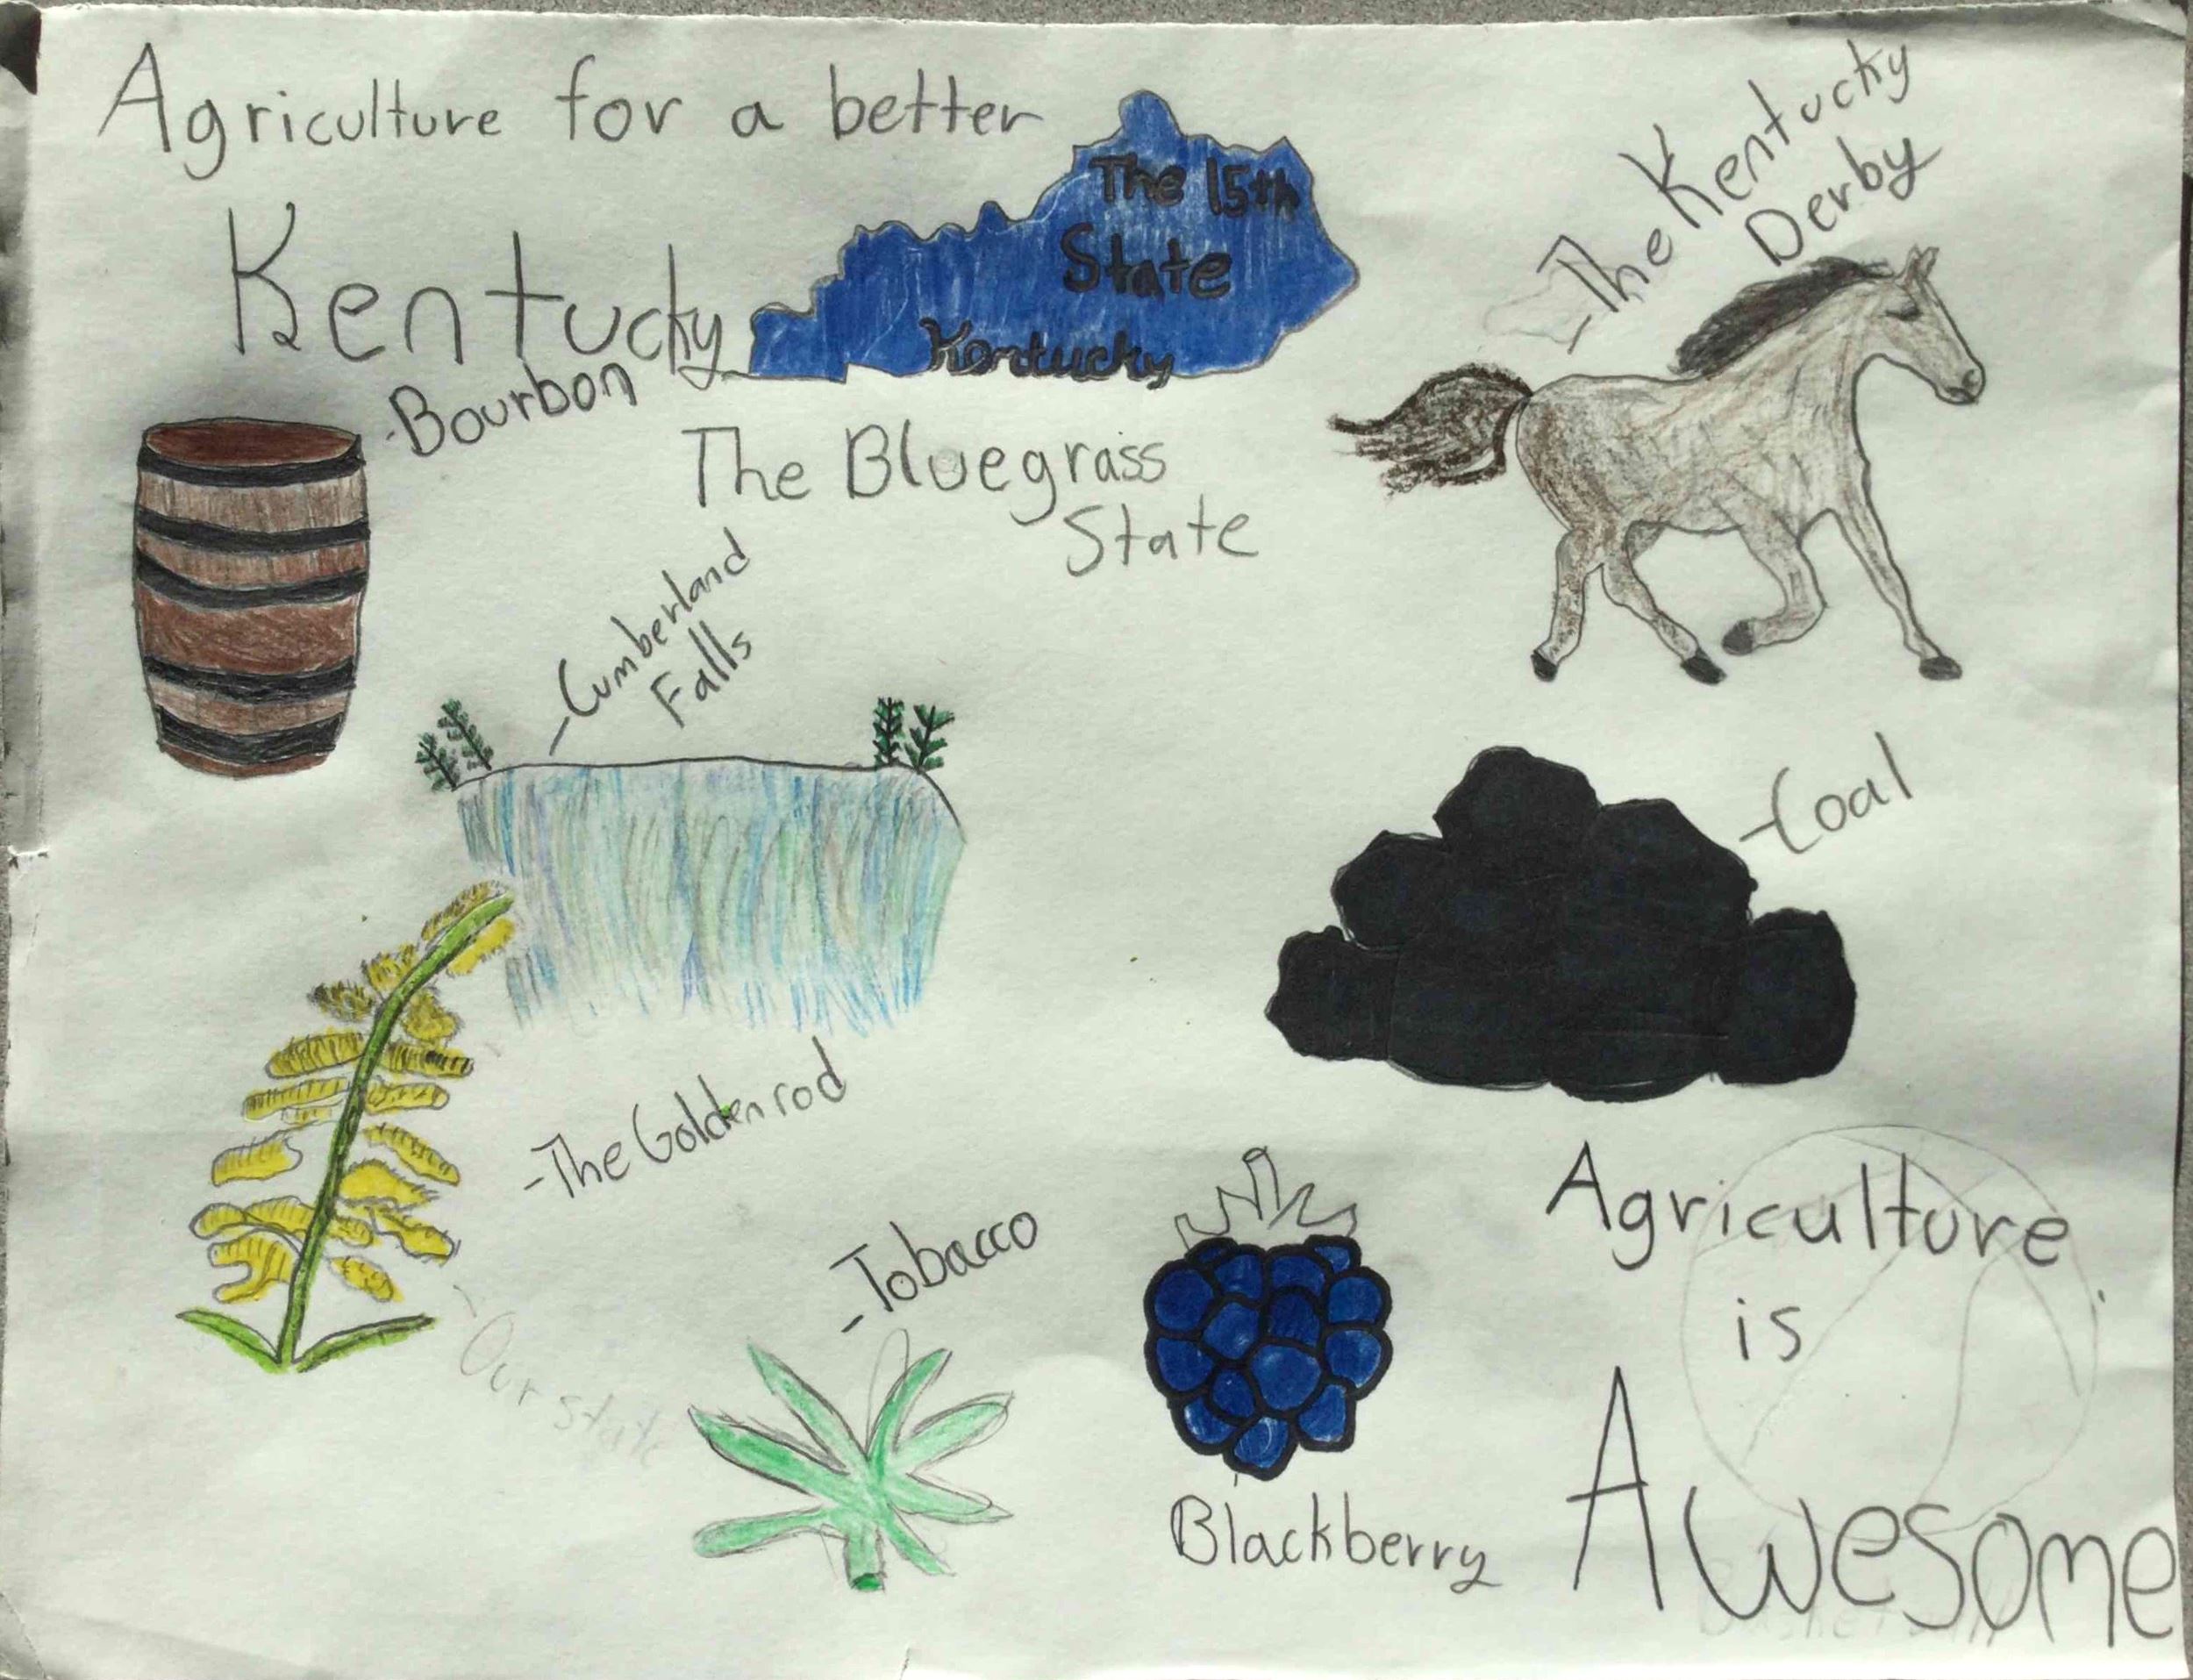 Agriculture for a better
Kentucky
The 15th
State
Kentucky
The Bluegrass
State
-Bourbon
-The Kentucky
Derby
-Cumberland
Falls
-Coal
-The Goldenrod
-Our state
-Tobacco
Blackberry
Agriculture
is
Awesome